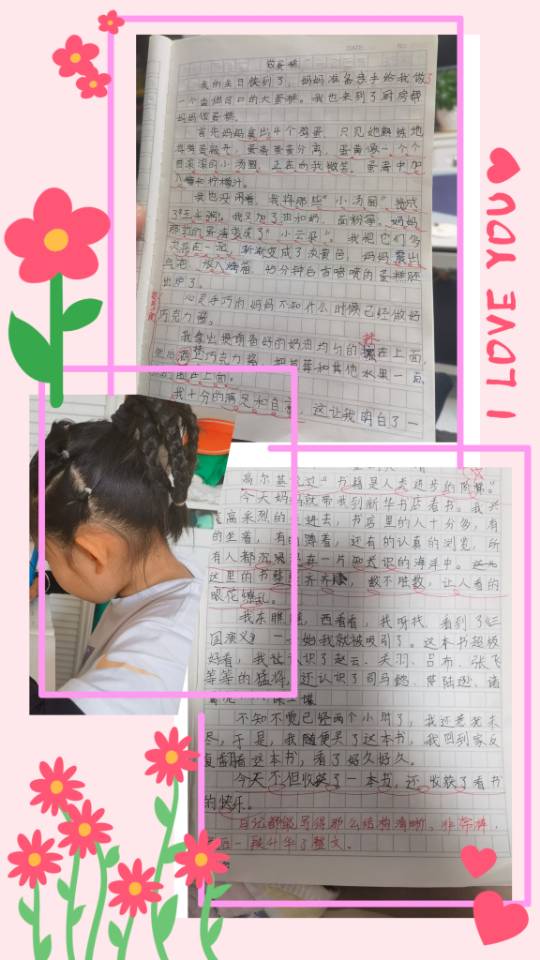 做蛋糕
我的生日快到了,妈妈准备亲手给我做
一个美味可口的大蛋糕。我也来到了厨房帮
妈妈做蛋糕。
首先妈妈拿出4个鸡蛋,只见她熟练地
将鸡蛋敲开,蛋黄蛋清分离,蛋黄像一个个
圆滚滚的小汤圆,正在向我微笑。蛋清中加
入糖和柠檬汁。
我也没闲着,我将那些“小汤圆”
我又加了油和奶、面粉等。妈妈
那边的蛋清变成了“小云朵”。我把它们
混在一起,渐渐变成了淡黄色,妈妈
放入烤箱,
出炉了。
心灵手巧的妈妈不知什么时候已经做好
巧克力酱。
我拿出喷喷香的奶油均匀的抹在上面,
巧克力酱,把草莓和其他水果一点
在上面。
我十分的满足和自豪,这让我明白了一
I LOVE YOU
高尔基说过“书籍是人类进步的阶梯。”
今天妈妈就带我到新华书店看书。我兴
高采烈的走进去,书店里的人十分多,有
的坐着,有的蹲着,还有的认真的浏览,所
有人都沉浸在一片知识的海洋中。
这里的书整整齐齐,数不胜数,让人看的
眼花缭乱。
我东瞧瞧,西看看,我呀找,看到了《三
国演义》,一开始我就被吸引了。这本书超级
好看,我认识了赵云、关羽、吕布、张飞
等等的猛将,还认识了司马懿、陆逊、诸
不知不觉已经两个小时了,我还意犹未
尽,于是,我随便买了这本书,我回到家反
复翻看这本书,看了好久好久。
今天不但收获了一本书,还收获了看书
的快乐。
每次都能写得那么结构清晰,非常棒,
最后一段升华了整文。